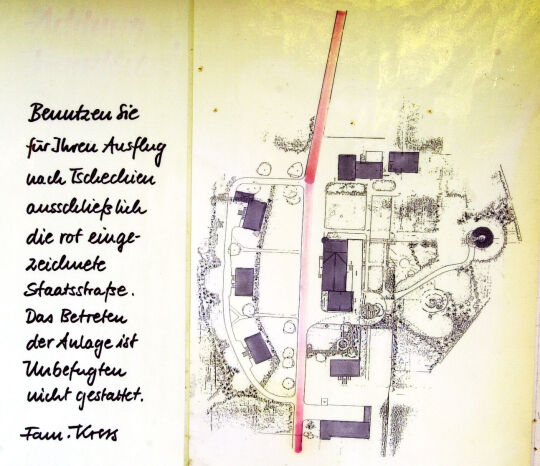 Benutzen Sie
für Ihren Ausflug
nach Tschechien
ausschließlich
die rot einge-
zeichnete
Staatsstraße.
Das Betreten
der Anlage ist
Unbefugten
nicht gestattet.
Fam. Kress